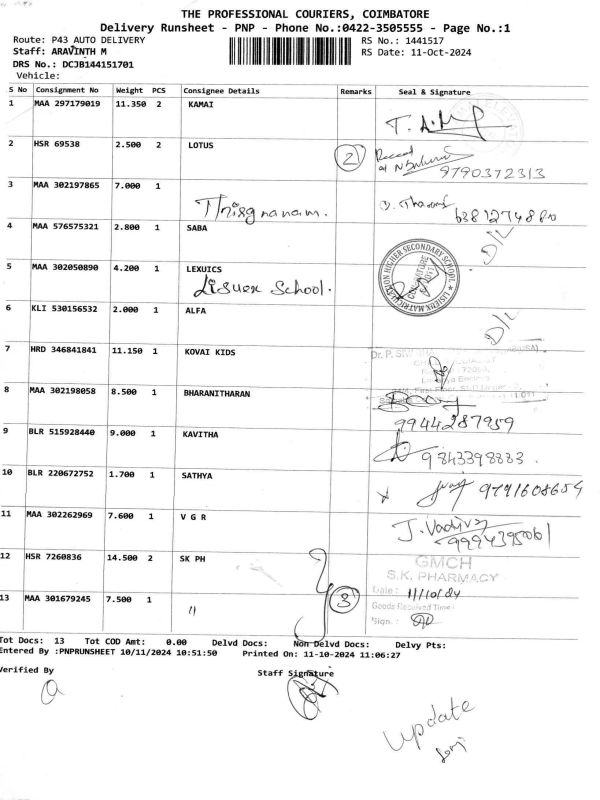 THE PROFESSIONAL COURIERS, COIMBATORE
Delivery Runsheet - PNP - Phone No.:0422-3505555 - Page No.:1
Route: P43 AUTO DELIVERY
RS No.: 1441517
Staff: ARAVINTH M
RS Date: 11-Oct-2024
DRS No.: DCJB144151701
Vehicle:
S No Consignment No Weight PCS Consignee Details Remarks Seal & Signature
1 MAA 297179019 11.350 2 KAMAI
2 HSR 69538 2.500 2 LOTUS 2 9790372313
3 MAA 302197865 7.000 1 6381274880
4 MAA 576575321 2.800 1 SABA D/L
5 MAA 302050890 4.200 1 LEXUICS
Lisuex School.
LISIEUX MATRICULATION HIGHER SECONDARY SCHOOL
6 KLI 530156532 2.000 1 ALFA D/L
7 HRD 346841841 11.150 1 KOVAI KIDS
8 MAA 302198058 8.500 1 BHARANITHARAN 9944287959
9 BLR 515928440 9.000 1 KAVITHA 9843398883.
10 BLR 220672752 1.700 1 SATHYA 9791608654
11 MAA 302262969 7.600 1 V G R J. Vadivel
12 HSR 7260836 14.500 2 SK PH
GMCH
S.K. PHARMACY
Date: 11/10/24
13 MAA 301679245 7.500 1 " 3
Goods Received Time:
Sign. :
Tot Docs: 13 Tot COD Amt: 0.00 Delvd Docs: Non Delvd Docs: Delvy Pts:
Entered By :PNPRUNSHEET 10/11/2024 10:51:50 Printed On: 11-10-2024 11:06:27
Verified By Staff Signature
update